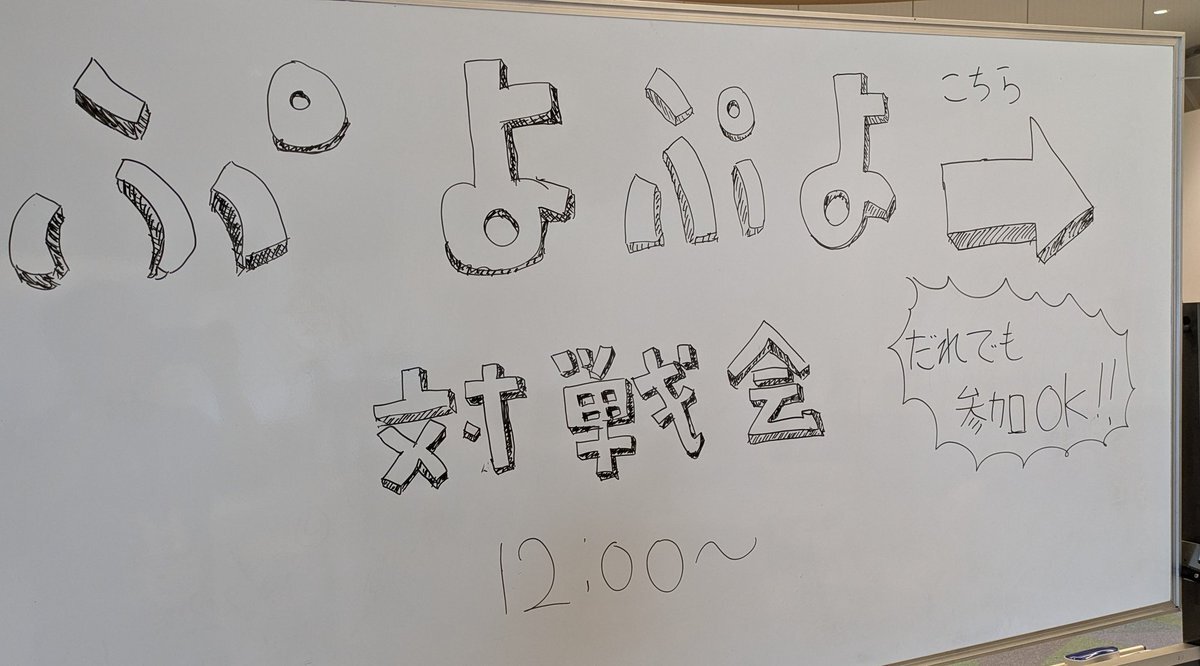 ぷよぷよ
こちら
対戦会
だれでも
参加OK!!
12:00~